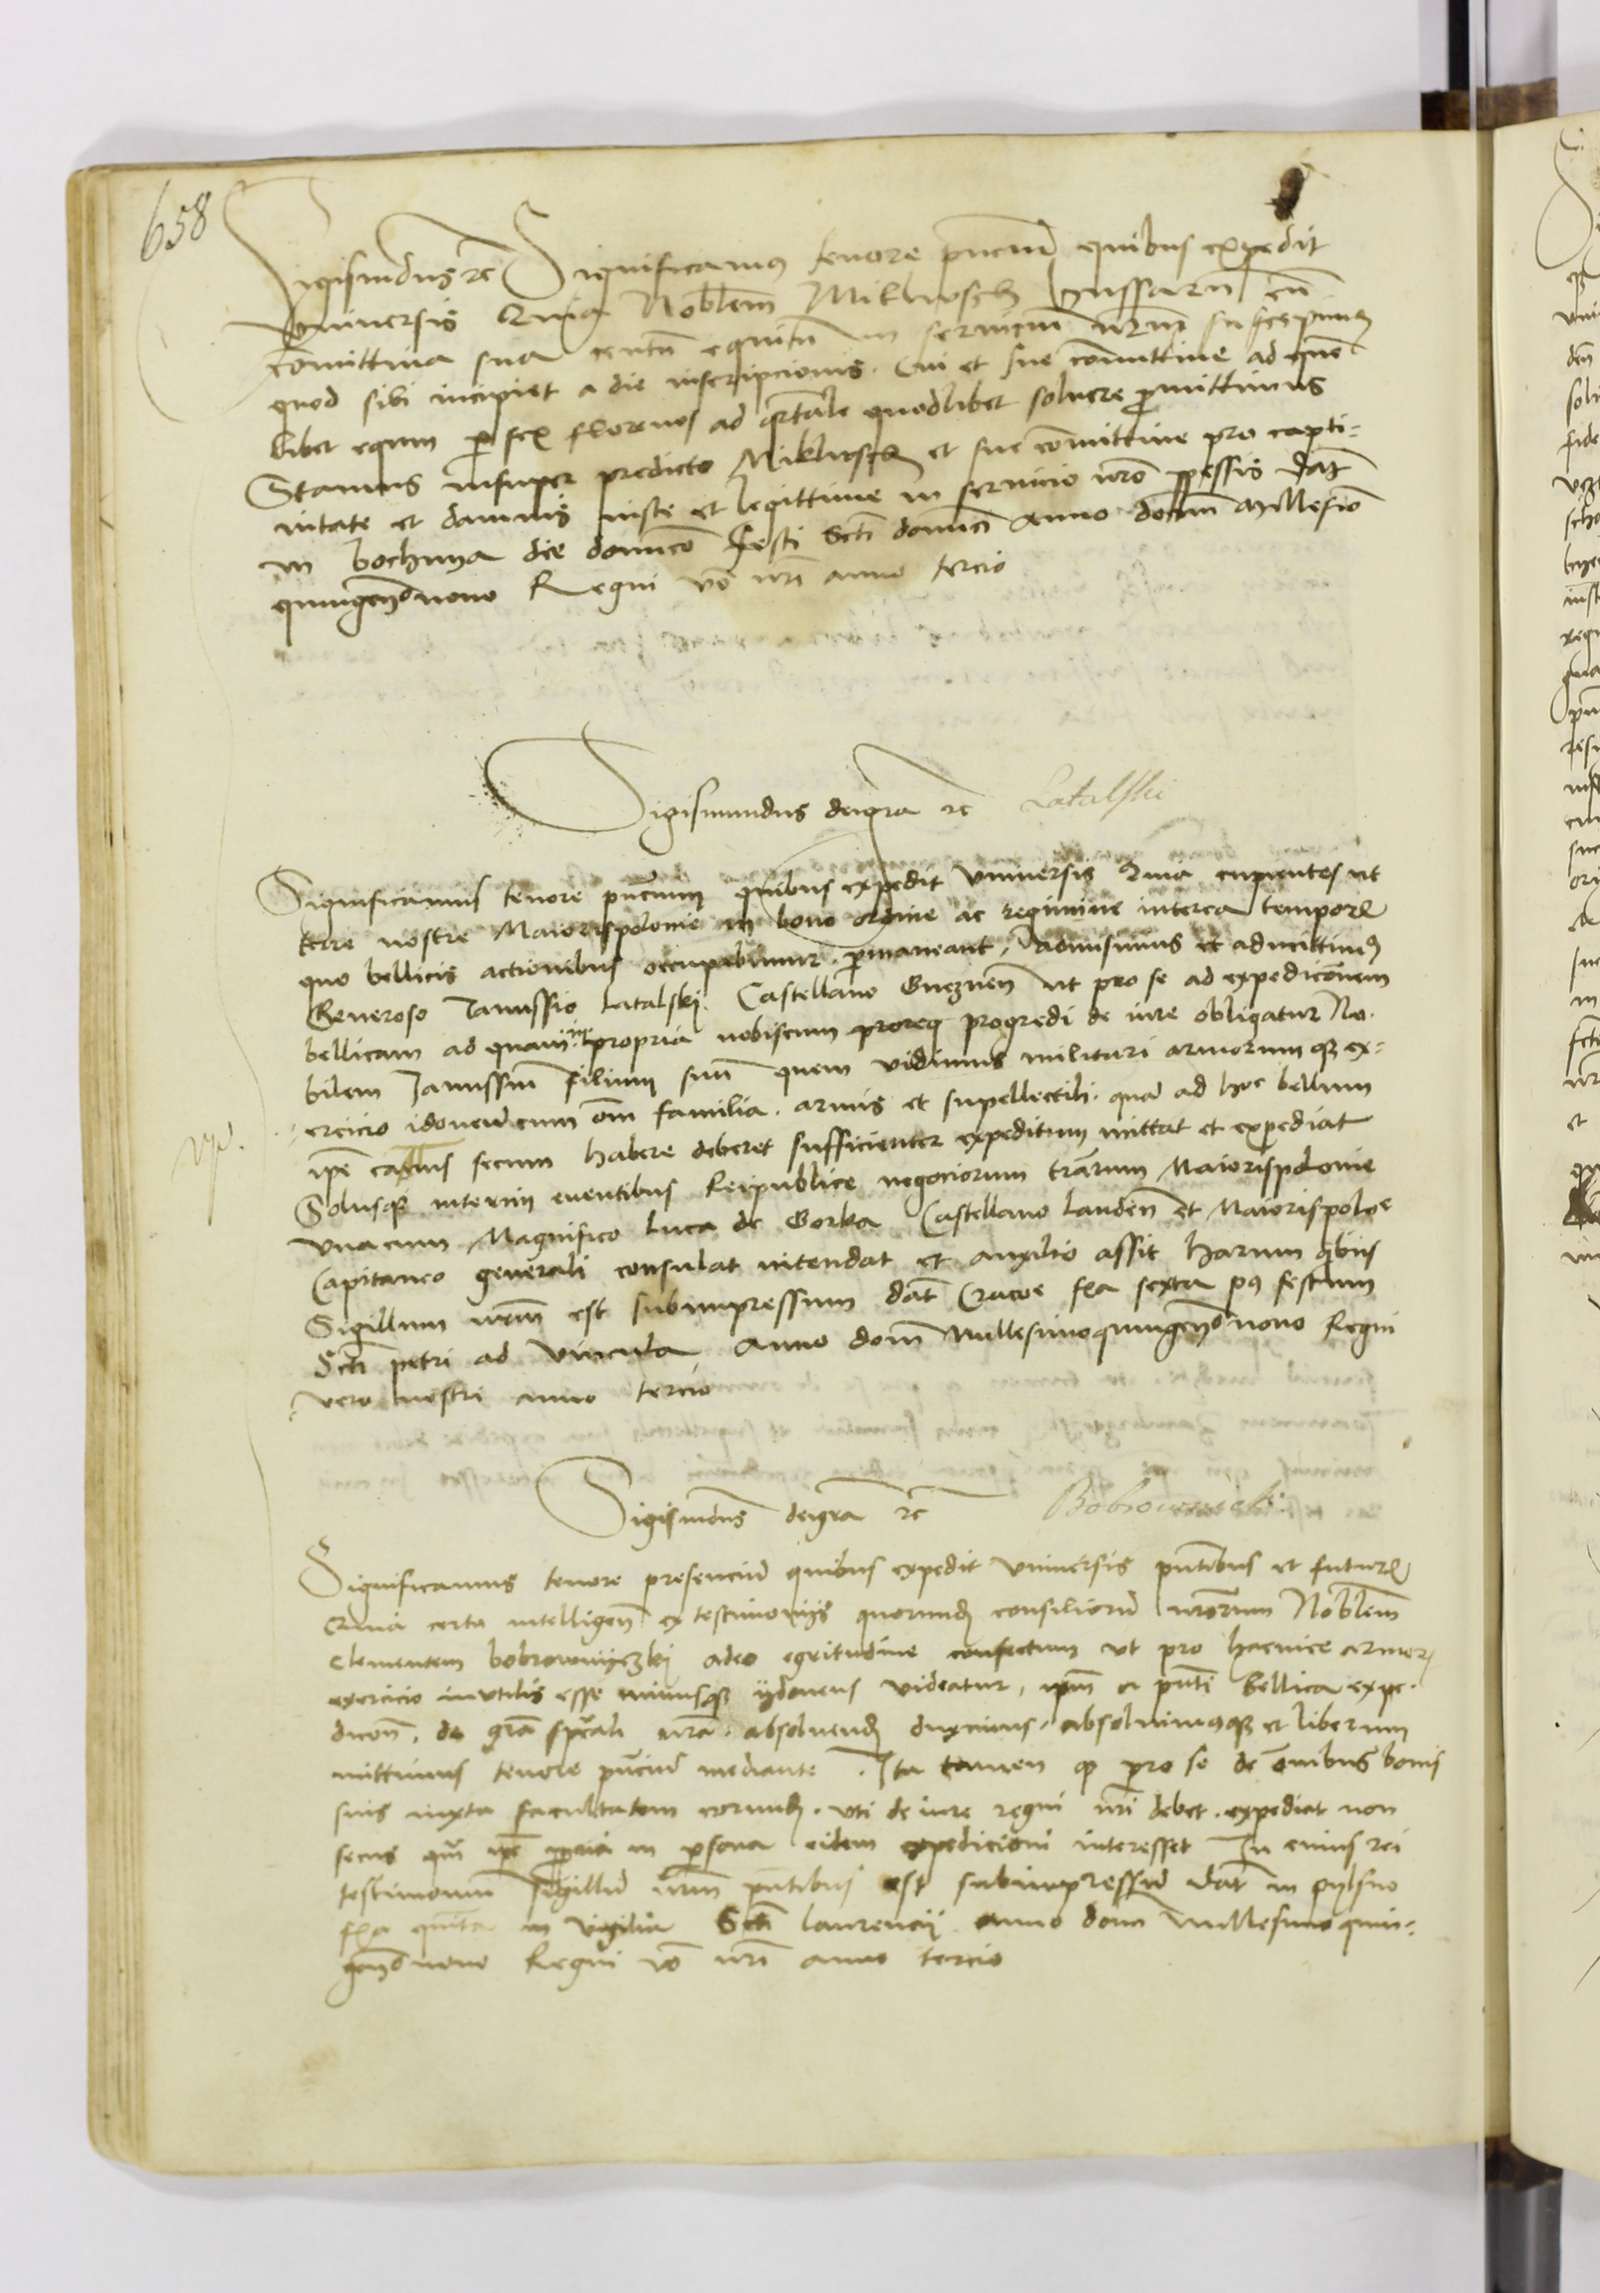 658
Sigismdus rc Significamus tenore pncium quibus expedit
Vniversis Quia Nobilem Miklusch hussarum cu
comittiva sua centu equitu in servicium nrum suscepimus
quod sibi incipiet a die inscripcionis. Cui et sue comittive ad quem
libet equum per sex florenos ad qrtale quodlibet solvere promittimus
Stamus insuper predicto Miklusch et sue comittive pro capti=
vitate et damnis iuste et legittime in servicio nro perpessis dat
in bochnya die dominico festi Scti dominici Anno domini Millesimo
quingentono nono Regni vo nri anno tercio
Sigismundus deigra rc Latalski
Significamus tenore pncium quibus expedit Vniversis Quia cupientes vt
terre nostre Maiorispolonie in bono ordine ac regimine interea temporis
quo bellicis actionibus occupabimur. permaneant, Admisimus et admittimus
Generoso Janussio Latalski Castellano Gneznen vt pro se ad expedicionem
bellicam ad quam propria nobiscum progredi de iure obligatur No.
bilem Janussiu filium suu quem vidimus militari armorumque ex=
ercicio idoneu cum omi familia. armis et supellectili. qua ad hoc bellum
ipe secum habere deberet sufficienter expeditum mittat et expediat
Solusque interim eventibus Reipublice negociorum trarum Maiorispolonie
vnacum Magnifico Luca de Gorka Castellano Landen et Maiorispoloe
Capitaneo generali consulat intendat et auxilio assit harum quibus
Sigillum nrum est subimpressum dat Cracoe fia sexta pos festum
Scti petri ad Vincula Anno dom Millesimoquingentono nono Regni
vero nostri anno tercio
Sigismdus deigra rc Bobrownicki
Significamus tenore presenciu quibus expedit Vniversis pntibus et futuris
Quia certa intelligen ex testimonijs quorundam consiliariorum nrorum Nobilem
Clementem bobrownyczki adeo egritudine confectum vt pro hac vice armorum
exercicio inutilis esse minusque ydoneus videatur, ipm a pnti bellica expe.
dicon. de gra speciali nra. absolvendum duximus, absolvimusque et liberum
mittimus tenore pnciu mediante. Ita tamen q pro se de omnibus bonis
suis iuxta facultatem eorundem. vti de iure regni nri debet. expediat non
secus qm ipe ppria in persona eidem expedicioni interesset In cuius rei
testimonium sigillu nrum pntibus est subimpressu dat in pylsno
fia quinta in vigilia Scti laurencij Anno domi Millesimo quin=
gentono nono Regni vo nri anno tercio